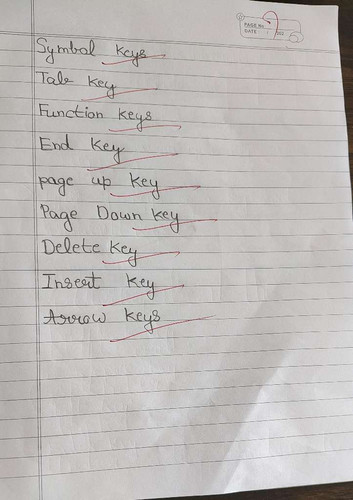 PAGE No
DATE
Symbol Keys
Tab Key
Function Keys
End Key
page up Key
Page Down Key
Delete Key
Insert Key
Arrow Keys